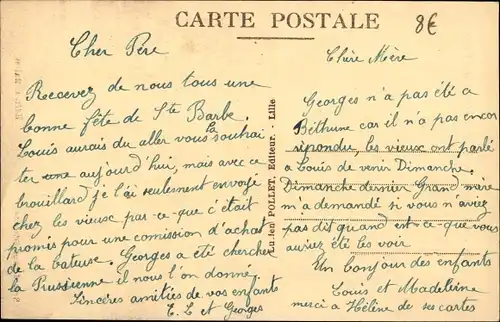 CARTE POSTALE
8€
Cher Père
Recevez de nous tous une
bonne fête de Ste Barbe.
Louis aurais du aller vous la souhai
ter une aujourd'hui, mais avec ce
brouillard je l'ai seulement envoyé
chez les vieux par-ce-que c'était
promis pour une comission d'achat
de la bateuse. Georges a été chercher
la Prussienne il nous l'on donne.
Sincères amitiés de vos enfants
E. L et Georges
Lucien POLLET, Editeur. - Lille
Chère Mère
Georges n'a pas été a
Béthune car il n'a pas encor
répondu, les vieux ont parlé
a Louis de venir Dimanche.
Dimanche dernier Grand'mère
m'a demandé si vous n'aviez
pas dit quand est-ce que vous
auriez été les voir
Un bonjour des enfants
Louis et Madeleine
merci à Hélène de ses cartes